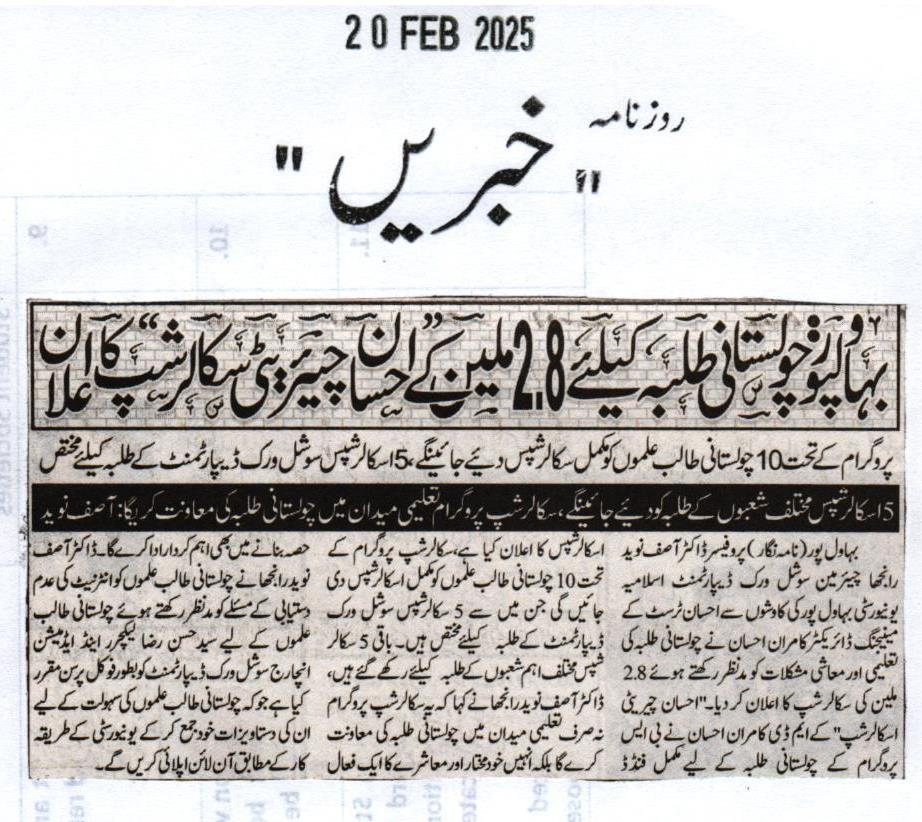 20 FEB 2025
روزنامہ
"خبریں"
بہاولپور، چولستانی طلبہ کیلئے 2.8 ملین کے ”احسان چیئریٹی سکالرشپ“ کا اعلان
پروگرام کے تحت 10 چولستانی طالب علموں کو مکمل سکالرشپس دیئے جائینگے، 5 اسکالرشپس سوشل ورک ڈیپارٹمنٹ کے طلبہ کیلئے مختص
5 اسکالرشپس مختلف شعبوں کے طلبہ کو دیئے جائینگے، سکالرشپ پروگرام تعلیمی میدان میں چولستانی طلبہ کی معاونت کریگا: آصف نوید
بہاول پور (نامہ نگار) پروفیسر ڈاکٹر آصف نوید
رانجھا چیئرمین سوشل ورک ڈیپارٹمنٹ اسلامیہ
یونیورسٹی بہاول پور کی کاوشوں سے احسان ٹرسٹ کے
مینیجنگ ڈائریکٹر کامران احسان نے چولستانی طلبہ کی
تعلیمی اور معاشی مشکلات کو مدنظر رکھتے ہوئے 2.8
ملین کی سکالرشپ کا اعلان کر دیا۔ "احسان چیریٹی
اسکالرشپ" کے ایم ڈی کامران احسان نے بی ایس
پروگرام کے چولستانی طلبہ کے لیے مکمل فنڈڈ
اسکالرشپس کا اعلان کیا ہے، سکالرشپ پروگرام کے
تحت 10 چولستانی طالب علموں کو مکمل اسکالرشپس دی
جائیں گی جن میں سے 5 سکالرشپس سوشل ورک
ڈیپارٹمنٹ کے طلبہ کیلئے مختص ہیں۔ باقی 5 سکالر
شپس مختلف اہم شعبوں کے طلبہ کیلئے رکھے گئے ہیں،
ڈاکٹر آصف نوید رانجھا نے کہا کہ یہ سکالرشپ پروگرام
نہ صرف تعلیمی میدان میں چولستانی طلبہ کی معاونت
کرے گا بلکہ انہیں خود مختار اور معاشرے کا ایک فعال
حصہ بنانے میں بھی اہم کردار ادا کرے گا۔ ڈاکٹر آصف
نوید رانجھا نے چولستانی طالب علموں کو انٹرنیٹ کی عدم
دستیابی کے مسئلے کو مدنظر رکھتے ہوئے چولستانی طالب
علموں کے لیے سید حسن رضا لیکچرر اینڈ ایڈمیشن
انچارج سوشل ورک ڈیپارٹمنٹ کو بطور فوکل پرسن مقرر
کیا ہے جو کہ چولستانی طالب علموں کی سہولت کے لیے
ان کی دستاویزات خود جمع کر کے یونیورسٹی کے طریقہ
کار کے مطابق آن لائن اپلائی کریں گے۔